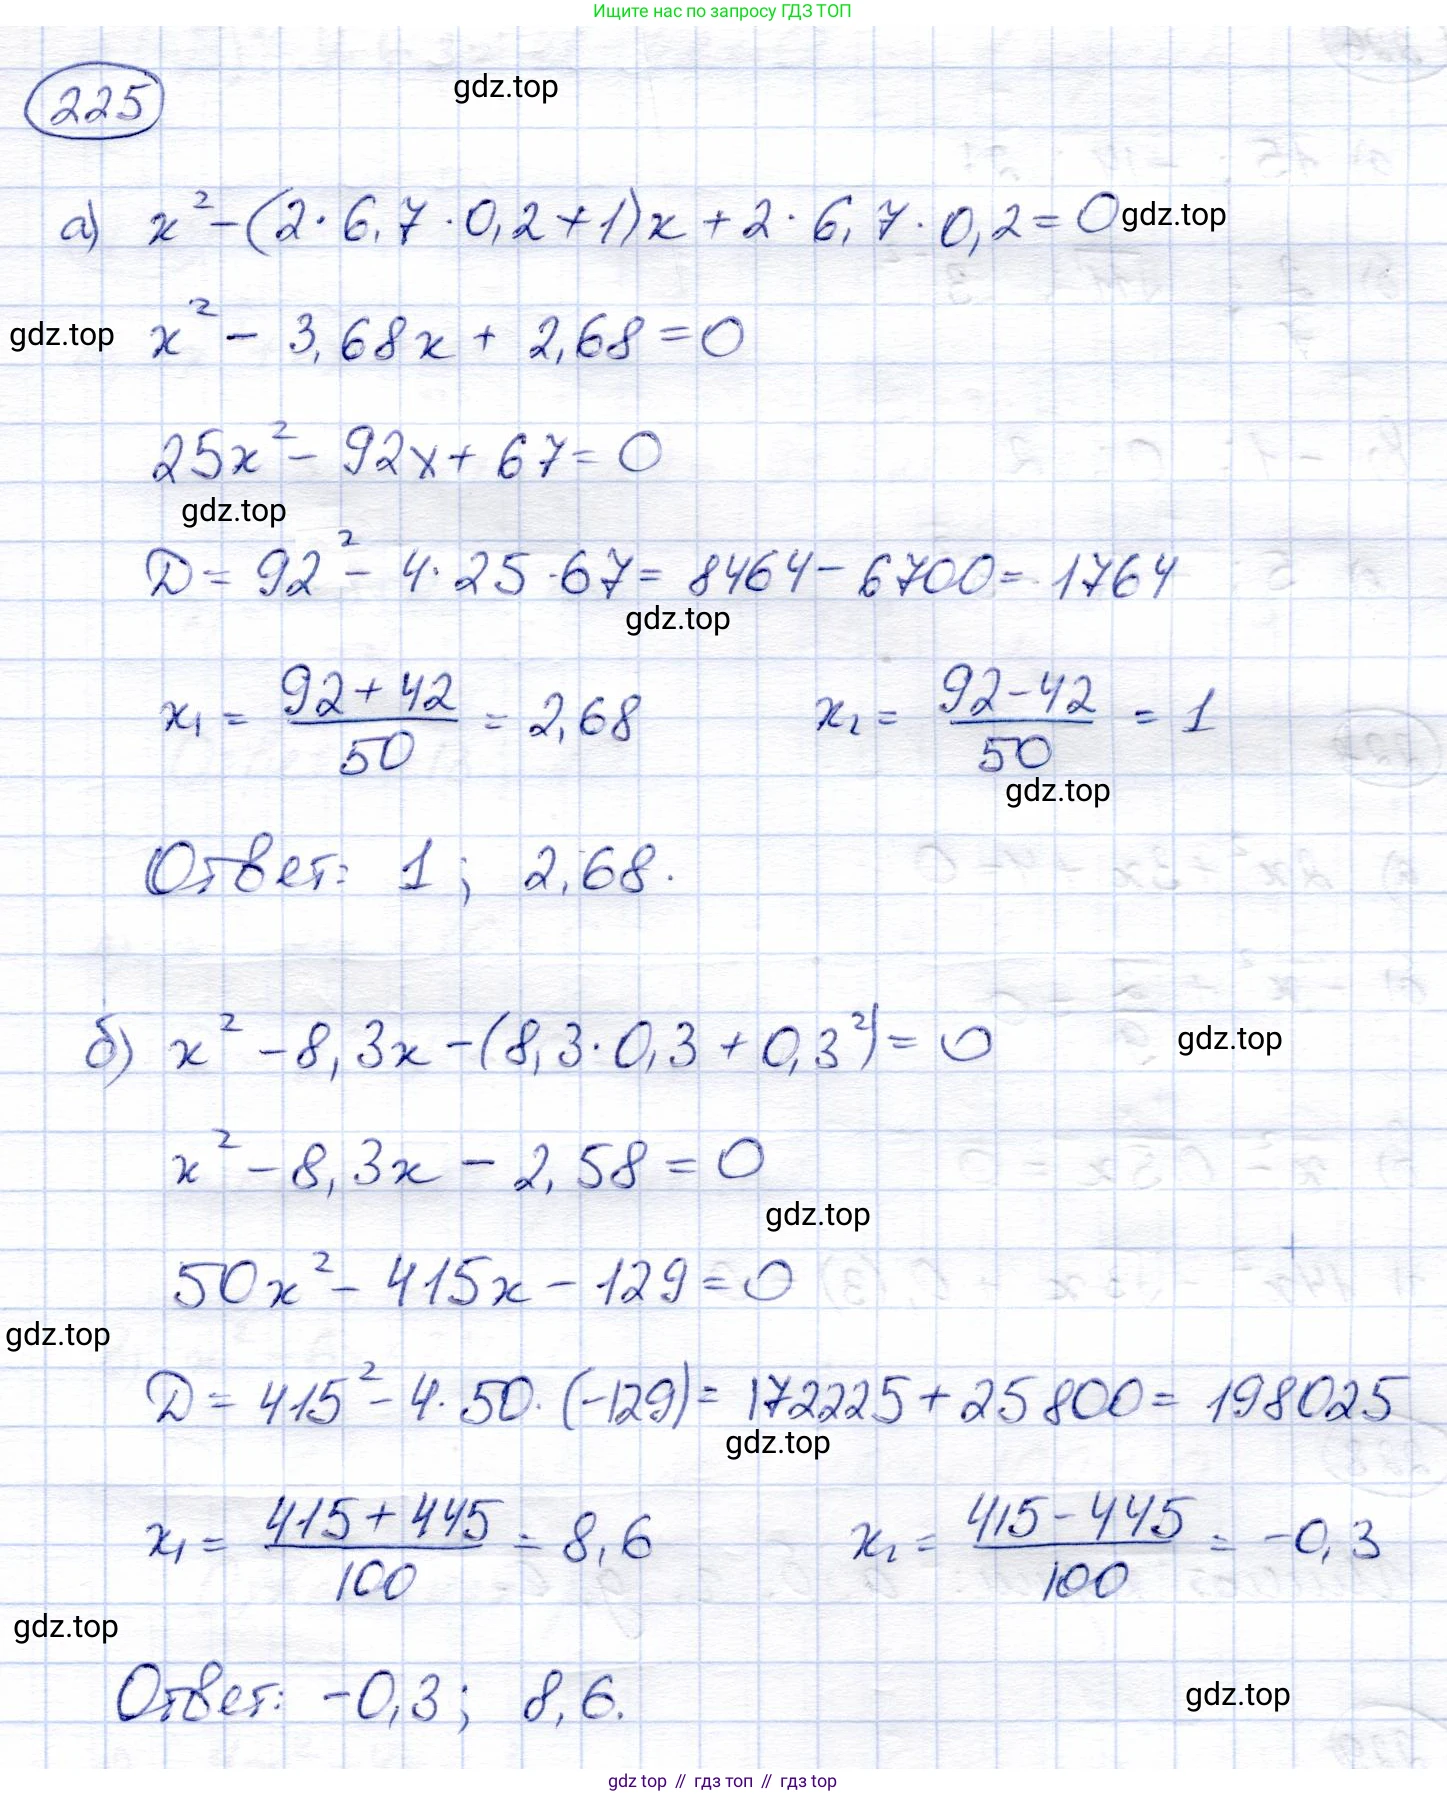 Ищите нас по запросу ГДЗ ТОП
225
gdz.top
а) x² - (2 · 6,7 · 0,2 + 1)x + 2 · 6,7 · 0,2 = 0
gdz.top
x² - 3,68x + 2,68 = 0
gdz.top
25x² - 92x + 67 = 0
gdz.top
D = 92² - 4 · 25 · 67 = 8464 - 6700 = 1764
gdz.top
x₁ = (92 + 42)/50 = 2,68 x₂ = (92 - 42)/50 = 1
gdz.top
Ответ: 1; 2,68.
б) x² - 8,3x - (8,3 · 0,3 + 0,3²) = 0
gdz.top
x² - 8,3x - 2,58 = 0
gdz.top
50x² - 415x - 129 = 0
gdz.top
D = 415² - 4 · 50 · (-129) = 172225 + 25800 = 198025
gdz.top
x₁ = (415 + 445)/100 = 8,6 x₂ = (415 - 445)/100 = -0,3
gdz.top
Ответ: -0,3; 8,6.
gdz.top
gdz top // гдз топ // гдз top